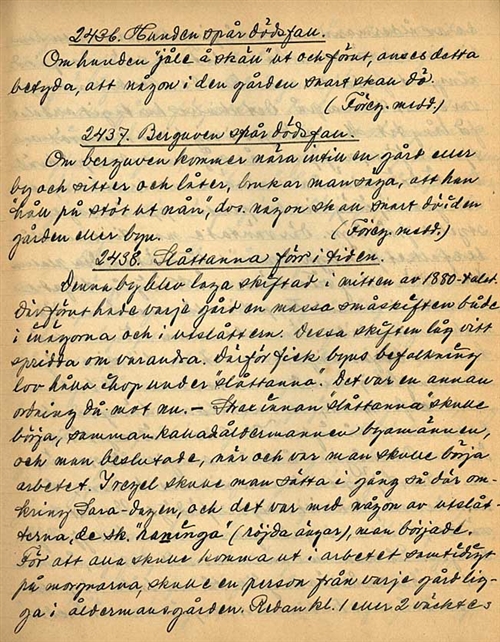 2436. Hunden spår dödsfall.
Om hunden "jåle å skäll" ut och förnt, anses detta
betyda, att någon i den gården snart skall dö.
(Föreg. medd.)
2437. Berguven spår dödsfall.
Om berguven kommer nära intill en gård eller
by och sitter och låter, brukar man säga, att han
"håll på stöt ut nån", dvs. någon skall snart dö i den
gården eller byn. (Föreg. medd.)
2438. Slåttanna förr i tiden.
Denna by blev laga skiftad i mitten av 1880-talet.
Dirförut hade varje gård en massa småskiften både
i inägorna och i utslåttern. Dessa skiften låg vitt
spridda om varandra. Därför fick byns befolkning
lov hålla ihop under "slåttanna". Det var en annan
ordning då mot nu. – Strax innan "slåttanna" skulle
börja, sammankallad åldermannen byamännen,
och man beslutade, när och var man skulle börja
arbetet. I regel skulle man sätta i gång så där om-
kring Sara-dagen, och det var med någon av utslåt-
terna, de sk. (röjda ängar), man började.
För att alla skulle komma ut i arbetet samtidigt
på morgnarna, skulle en person från varje gård lig-
ga i åldermansgården. Redan kl. 1 eller 2 väcktes